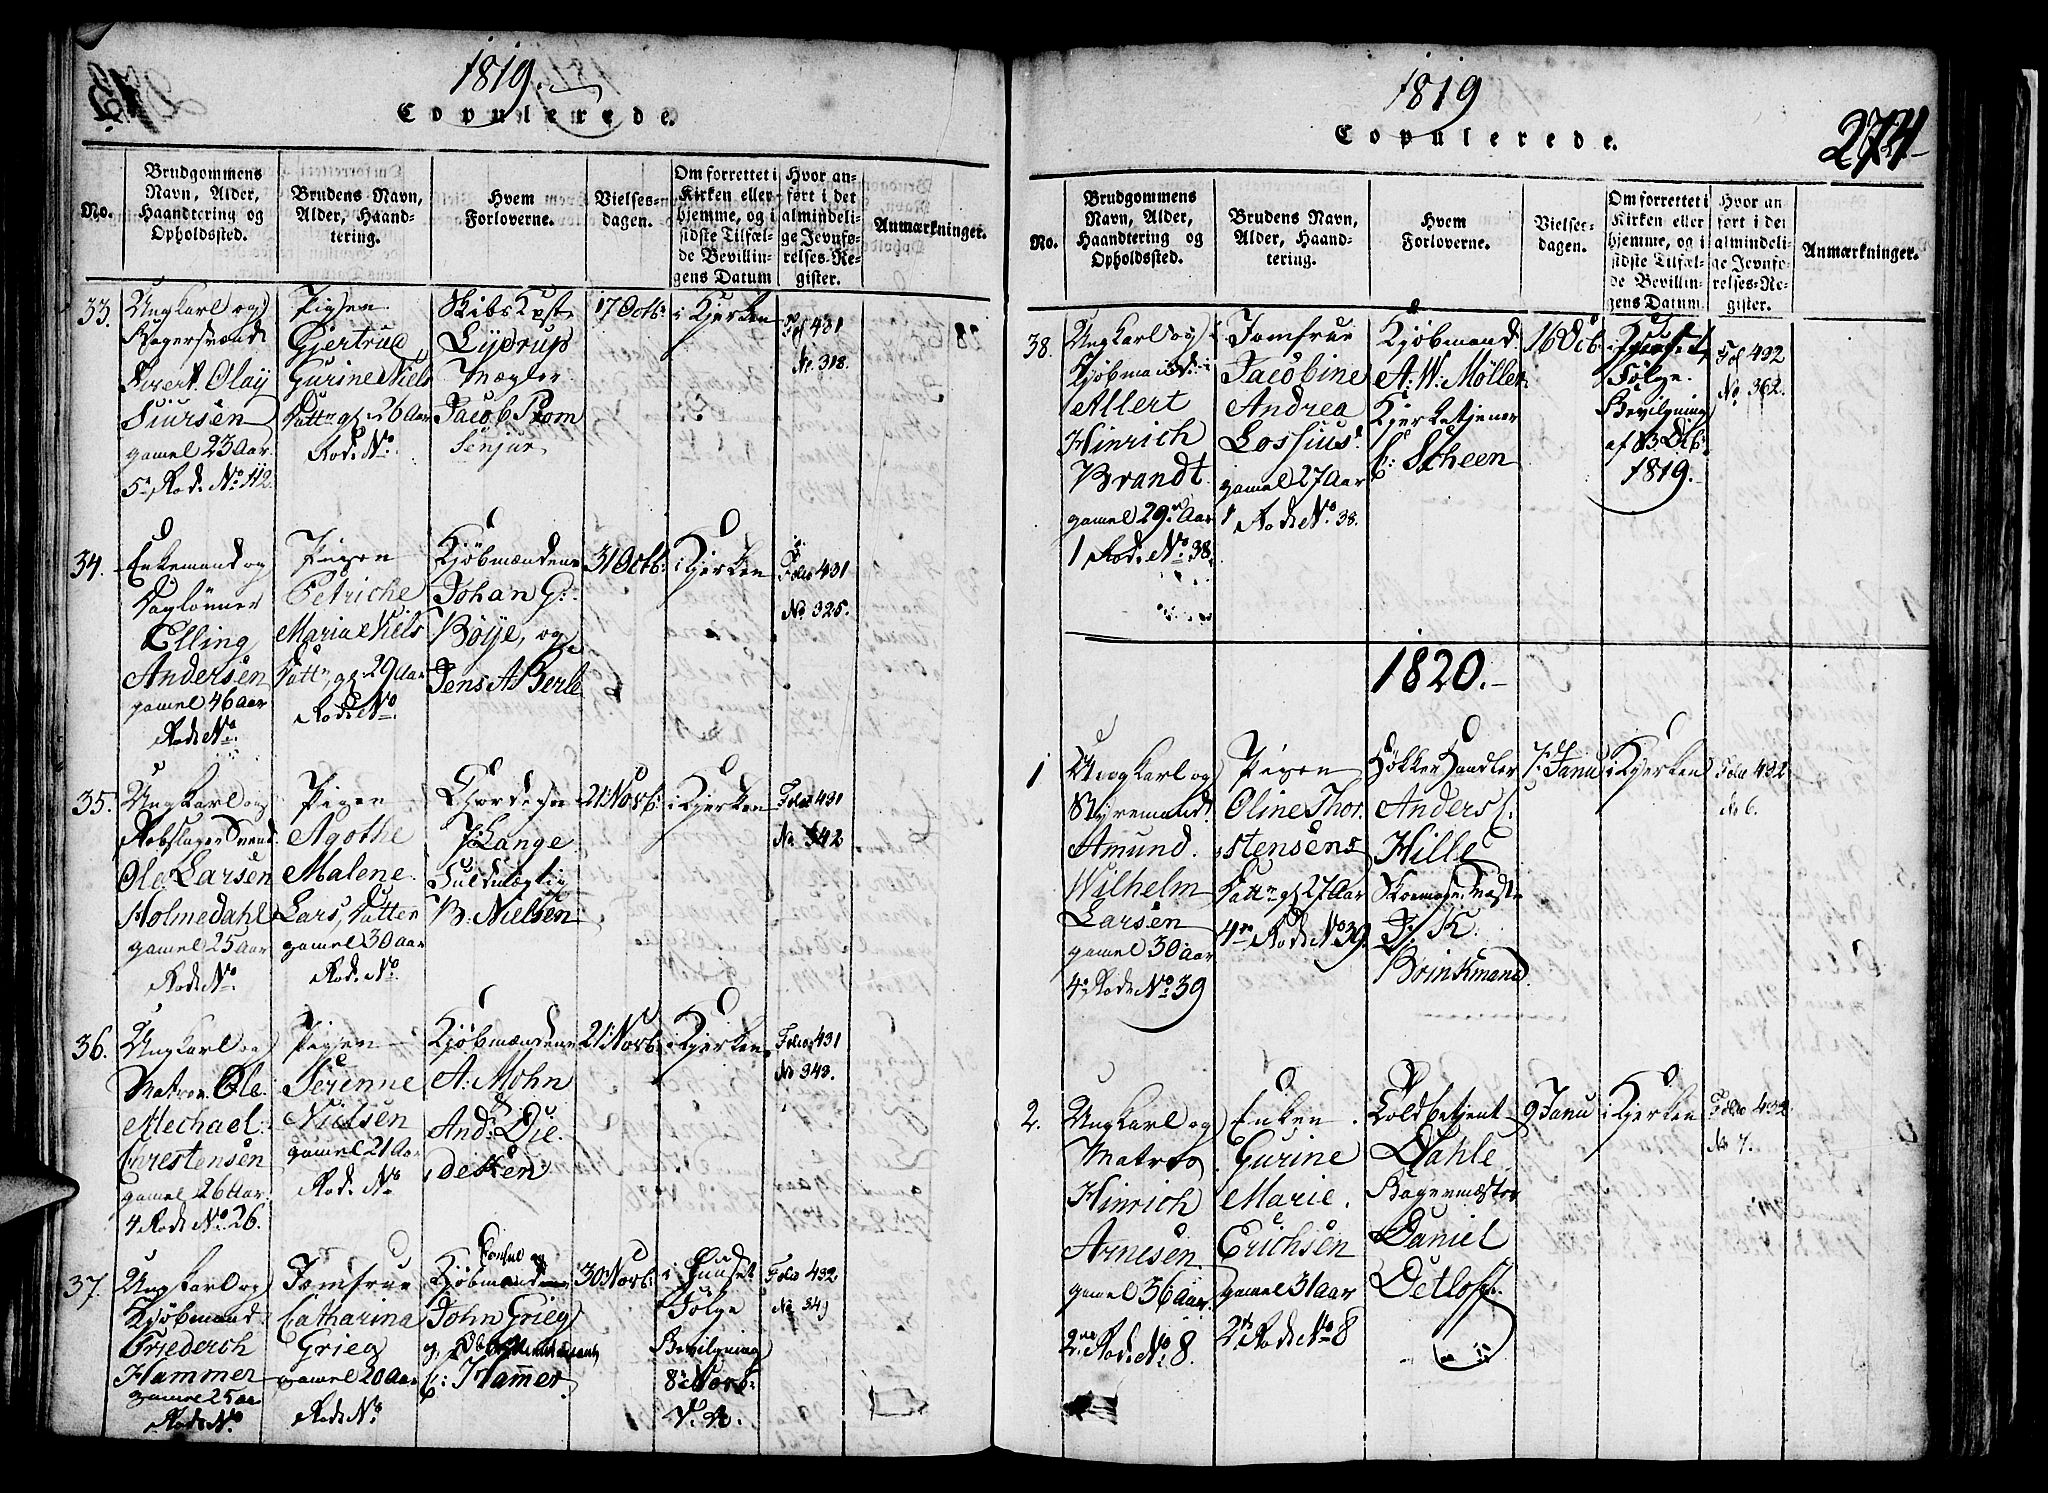 1819.
Copulerede.
No.
Brudgommens
Navn, Alder,
Haandtering og
Opholdssted.
Brudens Navn,
Alder, Haand-
tering.
Hvem
Forloverne.
Vielses-
dagen.
Om forrettet i
Kirken eller
hjemme, og i
sidste Tilfæl-
de Bevillin-
gens Datum
Hvor an-
ført i det
almindeli-
ge Jevnfø-
relses-Re-
gister.
Anmærkninger.
33.
Ungkarl og
Bagersvend
Sivert Olay
Siursen
gamel 23 Aar
5te Rode No. 112.
Pigen
Gjertrud
Gurine Niels
Datter gl. 26 Aar
Rode No.
Skibs Capt
Lydrup
Mægler
Jacob Prom
Senjur
17 Octb:
i Kjerken
Fol 431
No. 318.
34.
Enkemand og
Daglønner
Elling
Andersen
gamel 46 Aar
Rode No.
Pigen
Petriche
Maria Niels
Datt, gl. 29 Aar
Rode No.
Kjøbmændene
Johan G:
Bøye, og
Jens A Berle
31 Octb:
i Kjerken
Folio 431
No 325.
35.
Ungkarl og
Rebslager Svend
Ole Larsen
Holmedahl
gamel 25 Aar
Rode No.
Pigen
Agothe
Malene
Lars, Datter
gamel 30 Aar
Rode No.
J: Lange
Fuldmægtig
B: Nielsen
21 Novb:
i Kjerken
Folio 431
No 342
36.
Ungkarl og
Matros Ole
Mechael
Chrestensen
gamel 26 Aar
4 Rode No. 26.
Pigen
Serenne
Nielsen
gamel 21 Aar
Rode No.
Kjøbmændene
A: Mohn
&
And: Die-
desken
21 Novb:
i Kjerken
Folio 431
No 343.
37.
Ungkarl og
Kjøbmand
Friederch
Hammer
gamel 25 aar
Rode No.
Jomfrue
Catharina
Grieg
gamel 20 Aar
Rode No.
Consul og
Kjøbmand
John Grieg
og
C: Hammer
30 Novb:
i Huuset
Følge
Bevilgning
8 Novb:
Folio 432
No 349
1819
Copulerede.
274
No.
Brudgommens
Navn, Alder,
Haandtering og
Opholdssted.
Brudens Navn,
Alder, Haand-
tering.
Hvem
Forloverne.
Vielses-
dagen.
Om forrettet i
Kirken eller
hjemme, og i
sidste Tilfæl-
de Bevillin-
gens Datum.
Hvor an
ført i det
almindeli-
ge Jevnfø-
relses-Re-
gister.
Anmærkninger.
38.
Ungkarl og
Kjøbmand
Allert
Hinrich
Brandt
gamel 29 Aar
1 Rode No. 38.
Jomfrue
Jacobine
Andrea
Lossius
gamel 27 Aar
1 Rode No. 38.
Kjøbmand
A: W: Møller
Kjerketjener
C: Scheen
16 Dcb:
i Huuset
Følge
Bevilgning
af 13 Dcb:
1819.
Fol 432
No. 362.
1820.
1
Ungkarl og
Styremand
Amund
Wilhelm
Larsen
gamel 30 aar
4 Rode No. 39
Pigen
Oline Thor-
stensens
Datter gl. 27 Aar
4 Rode No 39.
Høkker Handler
Anders C:
Hille
J: K:
Brinkmand
7 Janu
i Kjerken
Folio 432
No 6.
2.
Ungkarl og
Matros
Hinrich
Arnesen
gamel 36 aar.
2 Rode No. 8.
Enken
Gurine
Marie
Erichsen
gamel 31 aar
2 Rode No 8
Toldbetjent
Dahle
Bagermester
Daniel
Detloff.
9 Janu
i Kjerken
Folio 432
No 7.